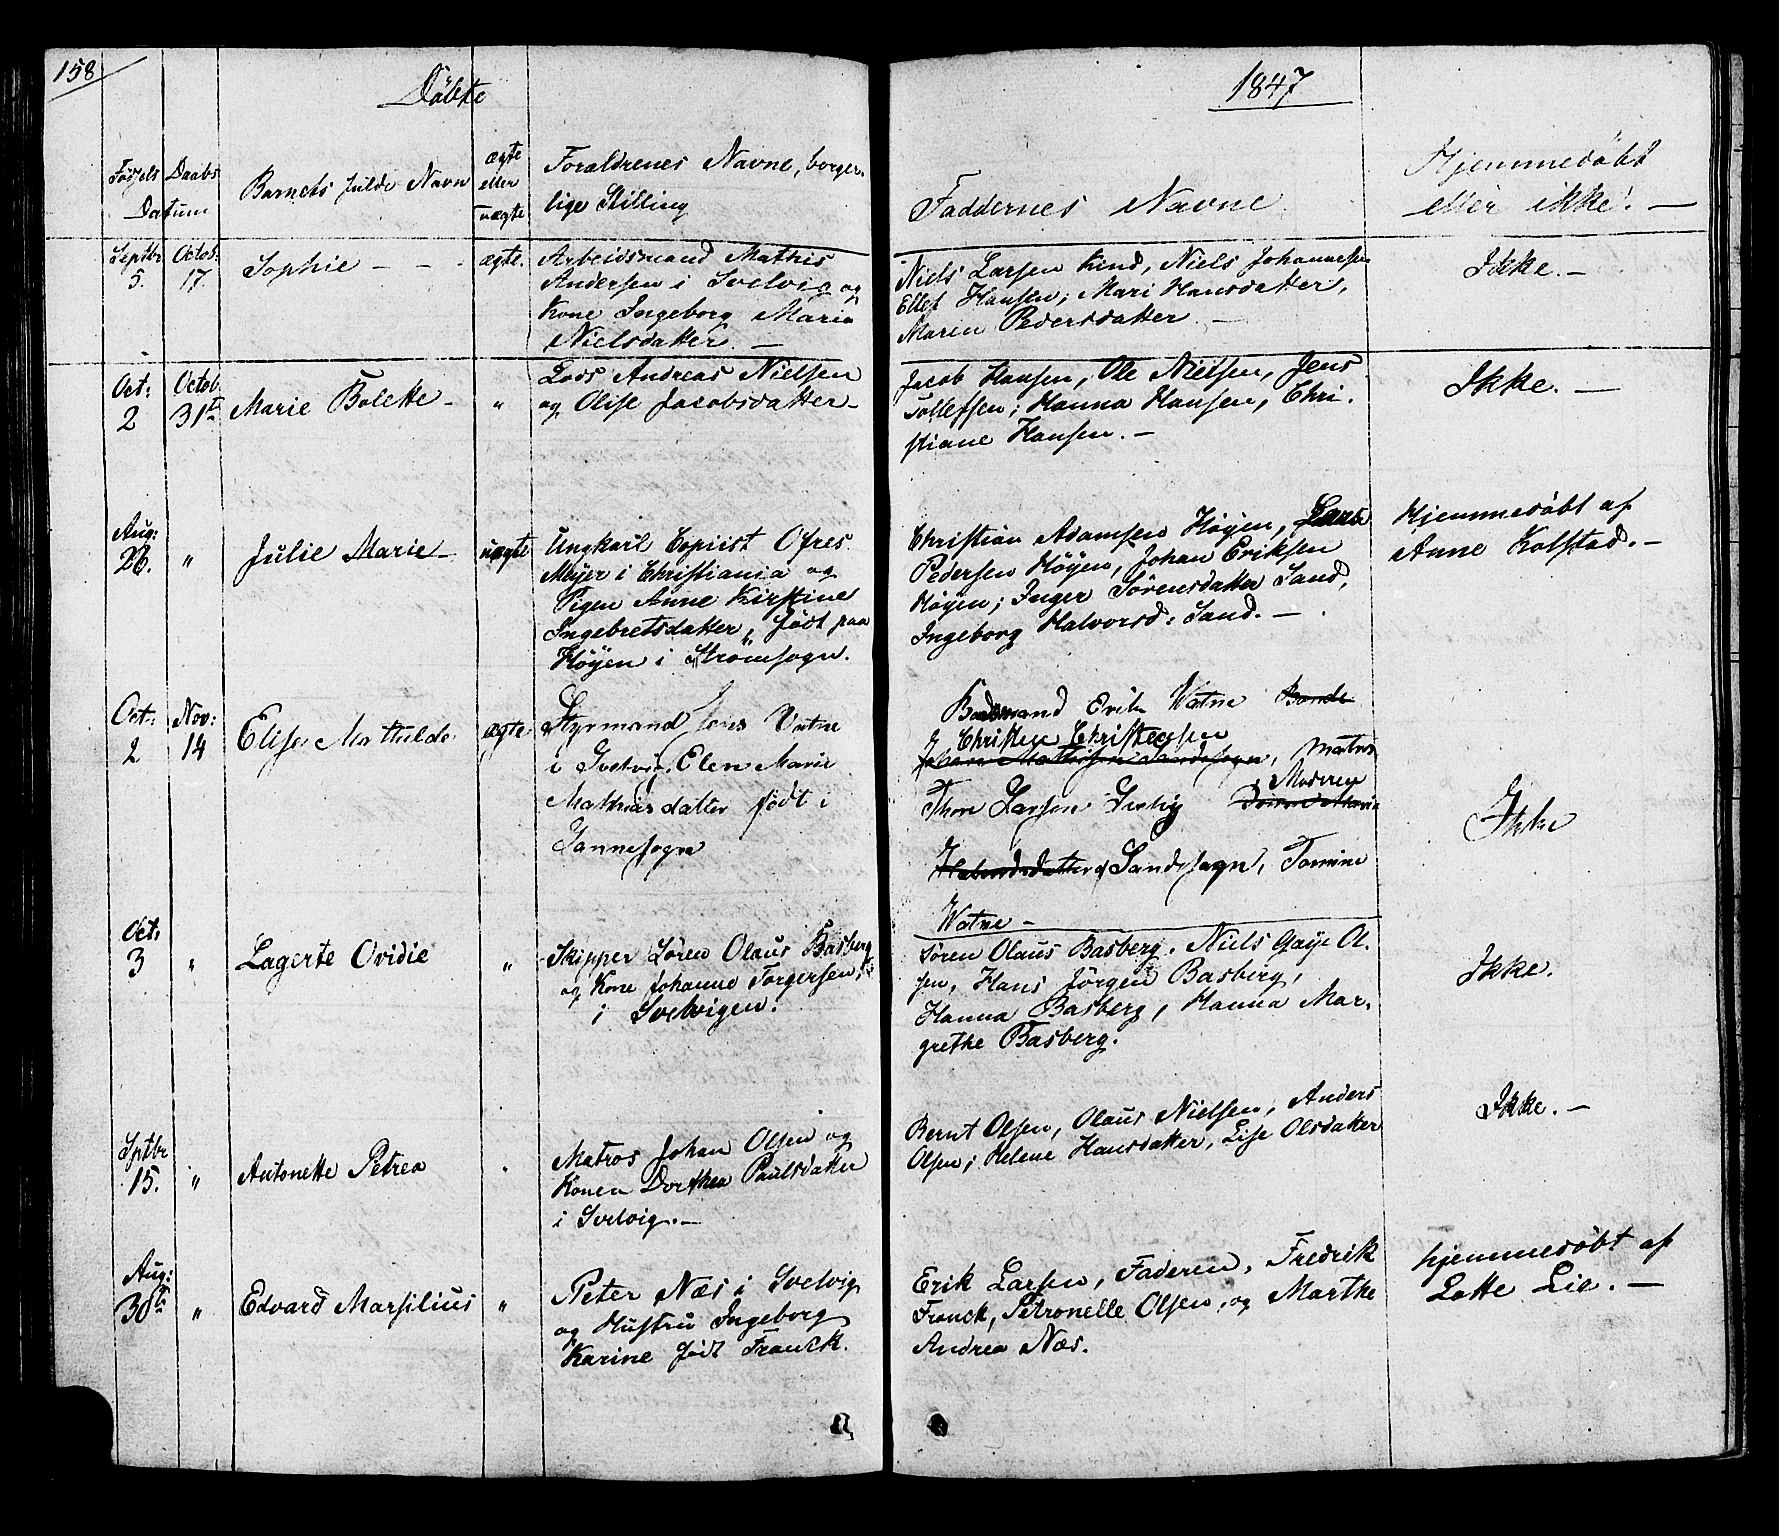 158
Döbte
1847
Födsels Daabs
Datum
Barnets fulde Navn
ægte
eller
uægte
Foraldrenes Navne, borger-
lige Stilling
Faddernes Navne
Hjemmedöbt
eller ikke. —
Septbr 5.
Octob: 17.
Sophie — —
ægte.
Arbeidsmand Mathis
Andersen i Svelvig og
Kone Ingeborg Maria
Nielsdatter. —
Niels Larsen Kind, Niels Johannesen
Ellef Hansen; Mari Hansdatter,
Maren Pedersdatter —
Ikke. —
Oct: 2
Octob. 31te
Marie Bolette —
"
Lods Andreas Nielsen
og Elise Jacobsdatter —
Jacob Hansen, Ole Nielsen, Jens
Tollefsen; Hanna Hansen, Chri-
stiane Hansen. —
Ikke. —
Aug: 26.
"
Julie Marie —
uægte
Ungkarl Copiist Ofres
Meyer i Christiania og
Pigen Anne Kirstine
Ingebretsdatter, födt paa
Höyen i Strömsogn.
Christian Adamsen Höyen, Lars
Pedersen Höyen, Johan Eriksen
Höyen; Inger Sörensdatter Sand,
Ingeborg Halvorsd: Sand. —
Hjemmedöbt af
Anne Kolstad. —
Oct: 2
Nov: 14
Elise Mathilde
ægte
Styrmand Jens Vatne
i Svelvig, Elen Marie
Mathiasdatter födt i
Sannesogn
Baadsmand Erik Watne Bonde
Christen Christensen
Johan Mathisen Sandesogn, Matros
Thore Larsen Svelvig Moderen
Halvordsdatter Sandesogn, Tomine
Watne —
Ikke
Oct: 3
"
Lagerte Ovidie
"
Skipper Sören Olaus Basberg
og Kone Johanne Torgersen,
i Svelvigen.
Sören Olaus Basberg, Niels Gaye Ol-
sen, Hans Jörgen Basberg,
Hanna Basberg, Hanna Mar-
grethe Basberg.
Ikke.
Sptbr 15.
"
Antonette Petrea
"
Matros Johan Olsen og
Konen Dorthea Paulsdatter
i Svelvig. —
Bernt Olsen, Olaus Nielsen, Anders
Olsen; Helene Hansdatter, Lise Olsdatter
Ikke. —
Aug: 30te
"
Edvard Marsilius
"
Peter Næs i Svelvig
og Hustru Ingeborg
Karine födt Franck.
Erik Larsen, Faderen, Fredrik
Franck, Petronelle Olsen, og Marthe
Andrea Næs.
hjemmedöbt af
Lotte Lie. —